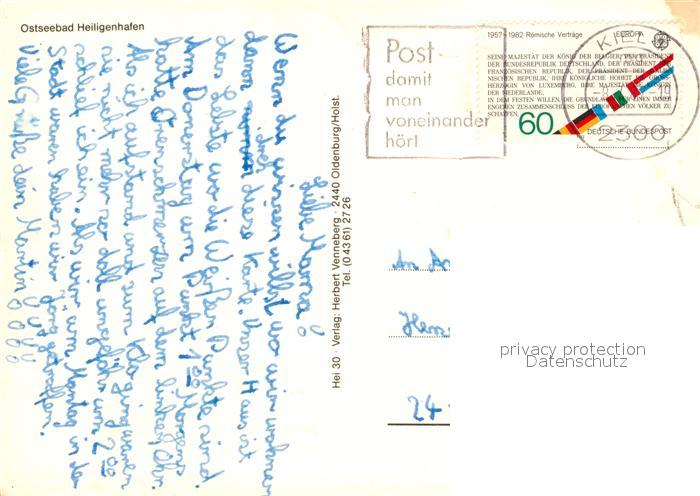 Ostseebad Heiligenhafen
Liebe Mama!
Wenn du wissen willst wo wir wohnen
davon ist diese Karte. Unser Haus ist
das letzte wo die Weißen Punkte sind.
Am Donnerstag um Punkt 1 00 Morgens
hatte Ohrenschmerzen auf dem linken Ohr.
Als ich aufstand und zum Klo ging waren
sie nicht mehr so doll ungefähr um 2 00
schlief ich ein. Als wir am Montag in der
Stadt waren haben wir getroffen.
Viele Grüße dein Martin
Hei 30 · Verlag: Herbert Venneberg · 2440 Oldenburg/Holst.
Tel. (0 43 61) 27 26
Post-
damit
man
voneinander
hört
1957-1982 Römische Verträge EUROPA
SEINE MAJESTÄT DER KÖNIG DER BELGIER, DER PRÄSIDENT
DER BUNDESREPUBLIK DEUTSCHLAND, DER PRÄSIDENT DER
FRANZÖSISCHEN REPUBLIK, DER PRÄSIDENT DER ITALIE-
NISCHEN REPUBLIK, IHRE KÖNIGLICHE HOHEIT DIE GROSS-
HERZOGIN VON LUXEMBURG, IHRE MAJESTÄT DIE KÖNIGIN
DER NIEDERLANDE,
IN DEM FESTEN WILLEN, DIE GRUNDLAGEN FÜR EINEN IMMER
ENGEREN ZUSAMMENSCHLUSS DER EUROPÄISCHEN VÖLKER ZU
SCHAFFEN
60
DEUTSCHE BUNDESPOST
KIEL
2300
An
24
privacy protection
Datenschutz